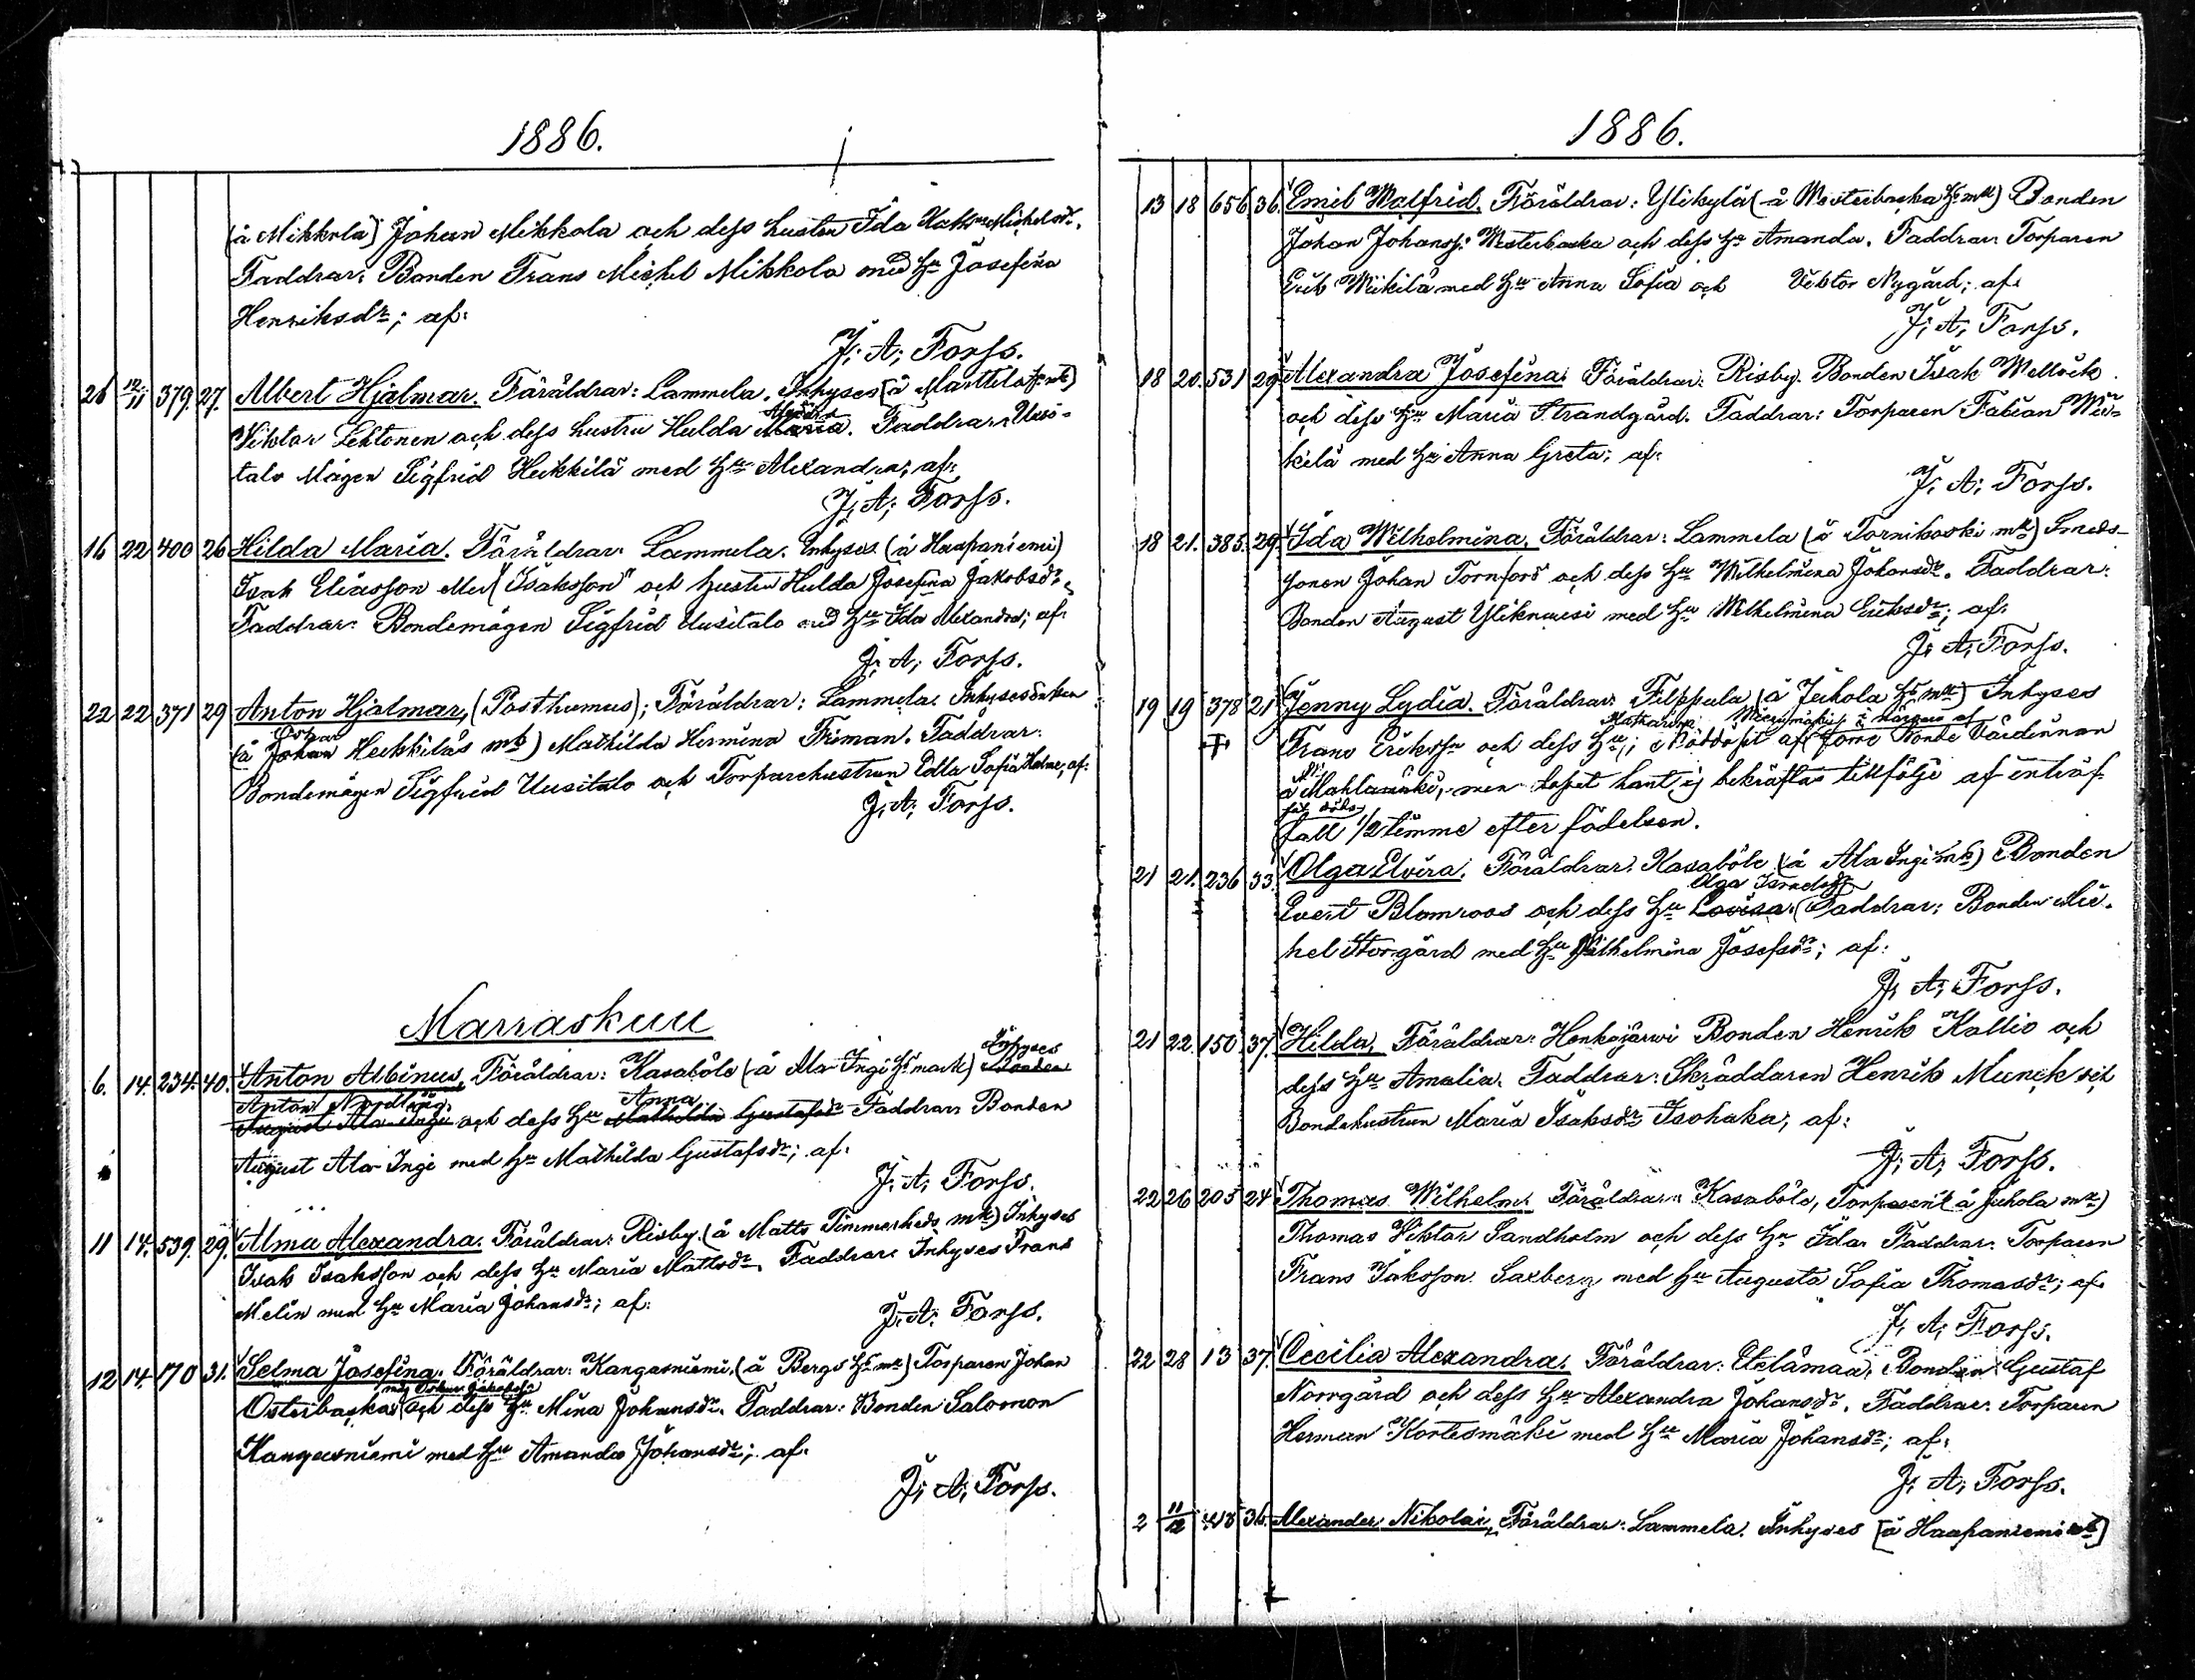 1886.
(å Mikkola) Johan Mikkola och dess hustru Ida
Faddrar: Bonden Frans Michel Mikkola med Hu Josefina
Henriksdr; af:
J. A. Forss.
26 12/11 379. 27. Albert Hjalmar. Föräldrar: Lammela. Inhyses (å Marttela
Viktor Lehtonen och dess hustru Hulda Maria. Faddrar: Uusi-
talo Mågen Sigfrid Heikkilä med Hu Alexandra; af:
J. A. Forss.
16 22 400 26 Hilda Maria. Föräldrar: Lammela. Inhyses (å Haapaniemi)
Isak Eliasson eller "Isaksson" och hustru Hulda Josefina Jakobsdr.
Faddrar: Bondemågen Sigfrid Uusitalo med Hu Ida Alexandra; af:
J. A. Forss.
22 22 371 29 Anton Hjalmar, (Posthumus); Föräldrar: Lammela. Inhysesenkan
(å Johan Heikkiläs mk) Mathilda Hermina Friman. Faddrar:
Bondemågen Sigfrid Uusitalo och Torparehustrun Edla Sofia Holme; af:
J. A. Forss.
Marraskuu
Inhyses
6. 14. 234. 40. Anton Albinus. Föräldrar: Kasaböle (å Ala-Ingi Hs mark) Bonden
Anton Nordling Anna
August Ala-Ingi och dess Hu Mathilda Gustafsdr Faddrar: Bonden
August Ala-Ingi med Hu Mathilda Gustafsdr; af:
J. A. Forss.
11 14. 539. 29. Alma Alexandra. Föräldrar: Risby. (å Matts Timmerheds mk) Inhyses
Isak Isaksson och dess Hu Maria Mattsdr. Faddrar: Inhyses Frans
Melin med Hu Maria Johansdr; af:
J. A. Forss.
12 14. 170 31. Selma Josefina. Föräldrar: Kangasniemi. (å Bergs Hs mk) Torparen Johan
Österbacka och dess Hu Mina Johansdr. Faddrar: Bonden Salomon
Kangasniemi med Hu Amanda Johansdr; af:
J. A. Forss.
1886.
13 18 656 36. Emil Walfrid. Föräldrar: Ylikylä (å Westerbacka Hs mk) Bonden
Johan Johanss: Westerbacka och dess Hu Amanda. Faddrar: Torparen
Erik Mikilä med Hu Anna Sofia och Viktor Nygård; af:
J. A. Forss.
18 20. 531 29. Alexandra Josefina. Föräldrar: Risby. Bonden Isak Wellrik
och dess Hu Maria Strandgård. Faddrar: Torparen Fabian Wii-
kilä med Hu Anna Greta; af:
J. A. Forss.
18 21. 385. 29. Ida Wilhelmina. Föräldrar: Lammela (å Tornikoski mk) Smeds-
sonen Johan Tornfors och dess Hu Wilhelmina Johansdr. Faddrar:
Bonden August Yliknuusi med Hu Wilhelmina Eriksdr; af:
J. A. Forss.
19 19 378 21 Jenny Lydia. Föräldrar: Filppula (å Juhola Hs mk) Inhyses
Frans Erikss: och dess Hu; Nöddöpt af
men dopet hant ej bekräftas tillfölje af inträf-
fall 1/2 timme efter födelsen.
21 21. 236 33. Olga Elvira. Föräldrar: Kasaböle (å Ala Ingi mk) Bonden
Olga Israelsdr
Evert Blomroos och dess Hu Lovisa. Faddrar: Bonden Mi-
kel Storgård med Hu Wilhelmina Josefsdr; af:
J. A. Forss.
21 22. 150 37. Hilda. Föräldrar: Honkajärwi Bonden Henrik Kallio och
dess Hu Amalia. Faddrar: Skräddaren Henrik Munck och
Bondehustrun Maria Isaksdr Isohaka; af:
J. A. Forss.
22 26 205 24 Thomas Wilhelm. Föräldrar: Kasaböle, Torparen (å Juhola mk)
Thomas Viktor Sandholm och dess Hu Ida. Faddrar: Torparen
Frans Isaksson Saxberg med Hu Augusta Sofia Thomasdr; af:
J. A. Forss.
22 28 13 37. Cecilia Alexandra. Föräldrar: Etelämaa. Bonden Gustaf
Norrgård och dess Hu Alexandra Johansdr. Faddrar: Torparen
Herman Kortesmäki med Hu Maria Johansdr; af:
J. A. Forss.
2 11/12 36. Alexander Nikolai. Föräldrar: Lammela. Inhyses (å Haapaniemi mk)